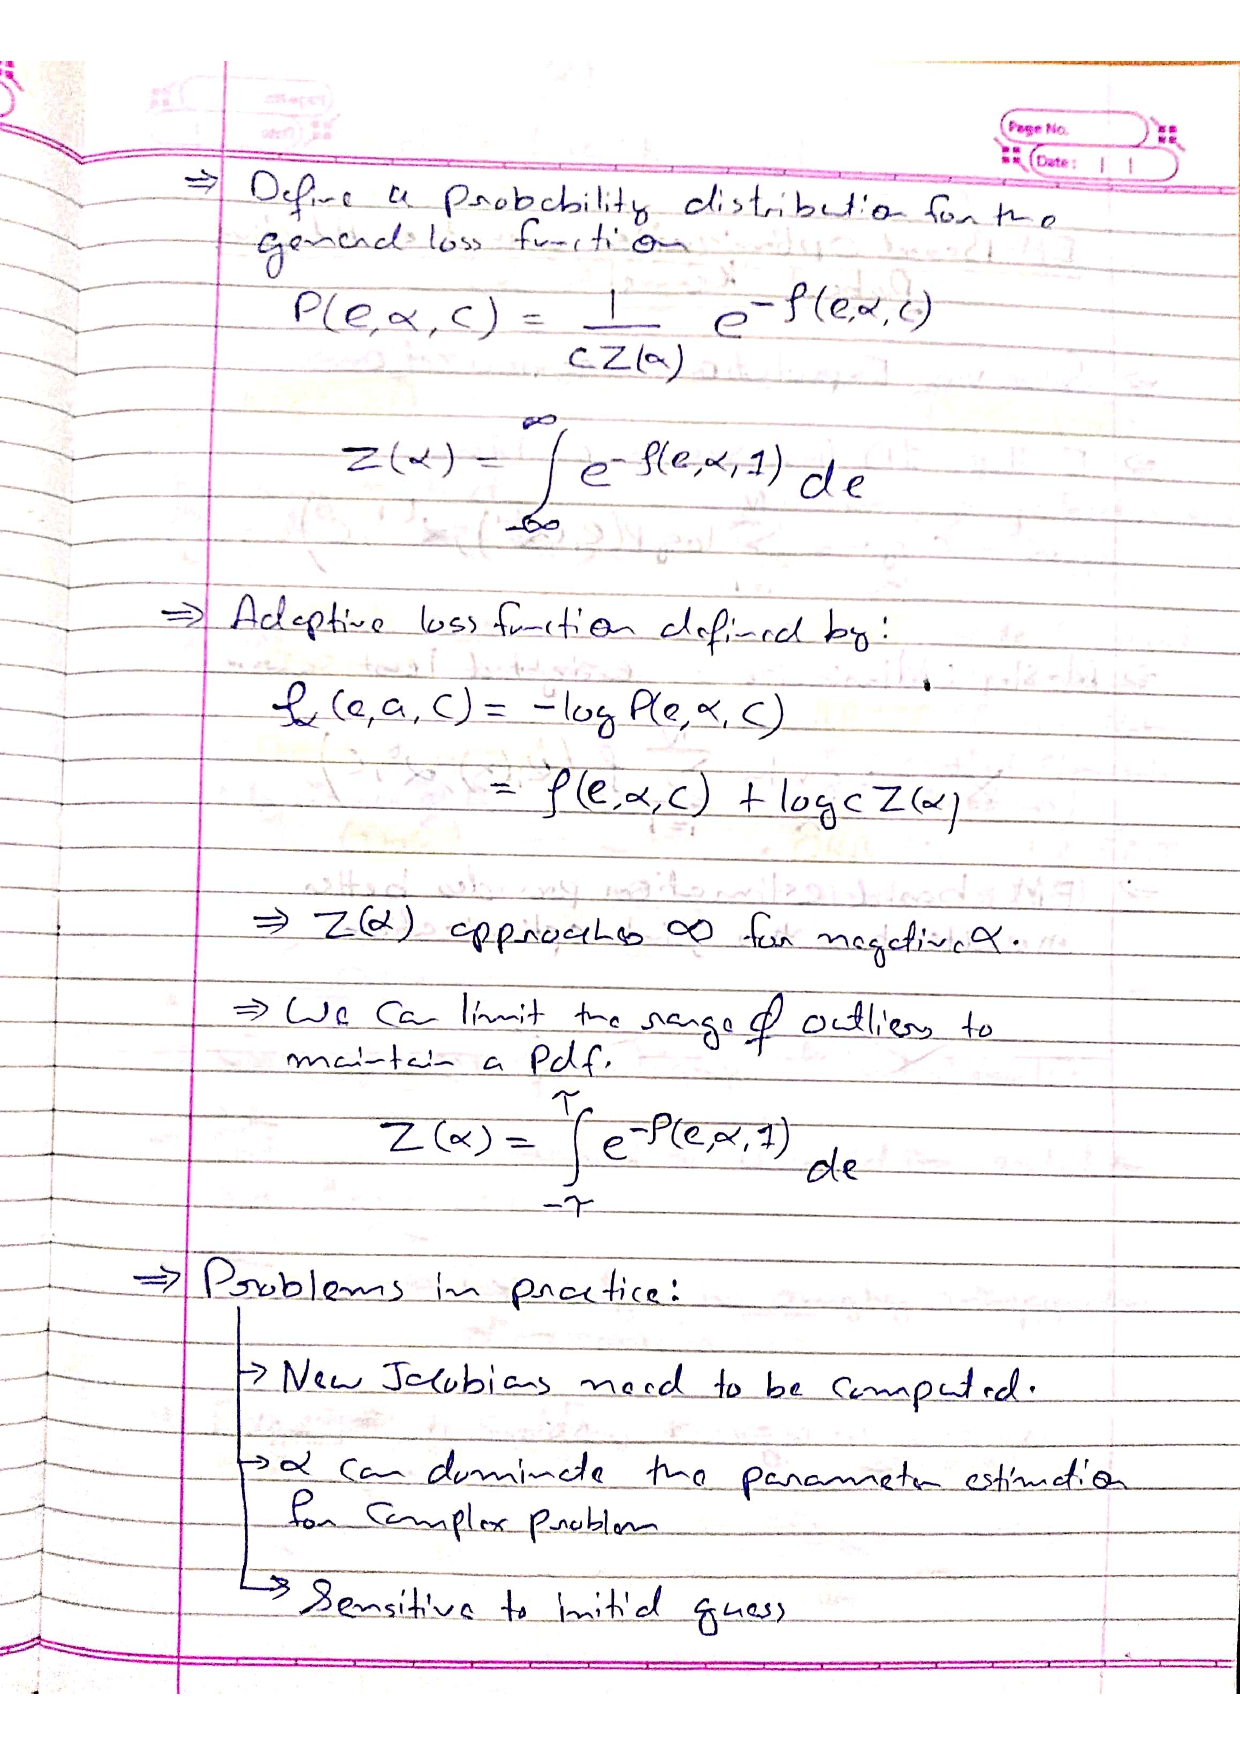 Page No.
Date:
⇒ Define a probability distribution for the
general loss function
P(e, α, c) = 1 / cZ(α) e^-ρ(e,α,c)
Z(α) = ∫_-∞^∞ e^-ρ(e,α,1) de
⇒ Adaptive loss function defined by:
(e, a, c) = -log P(e, α, c)
= ρ(e, α, c) + log c Z(α)
⇒ Z(α) approaches ∞ for negative α.
⇒ We can limit the range of outliers to
maintain a pdf.
Z(α) = ∫_-τ^τ e^-ρ(e,α,1) de
⇒ Problems in practice:
→ New Jacobians need to be computed.
→ α can dominate the parameter estimation
for complex problem
→ Sensitive to initial guess